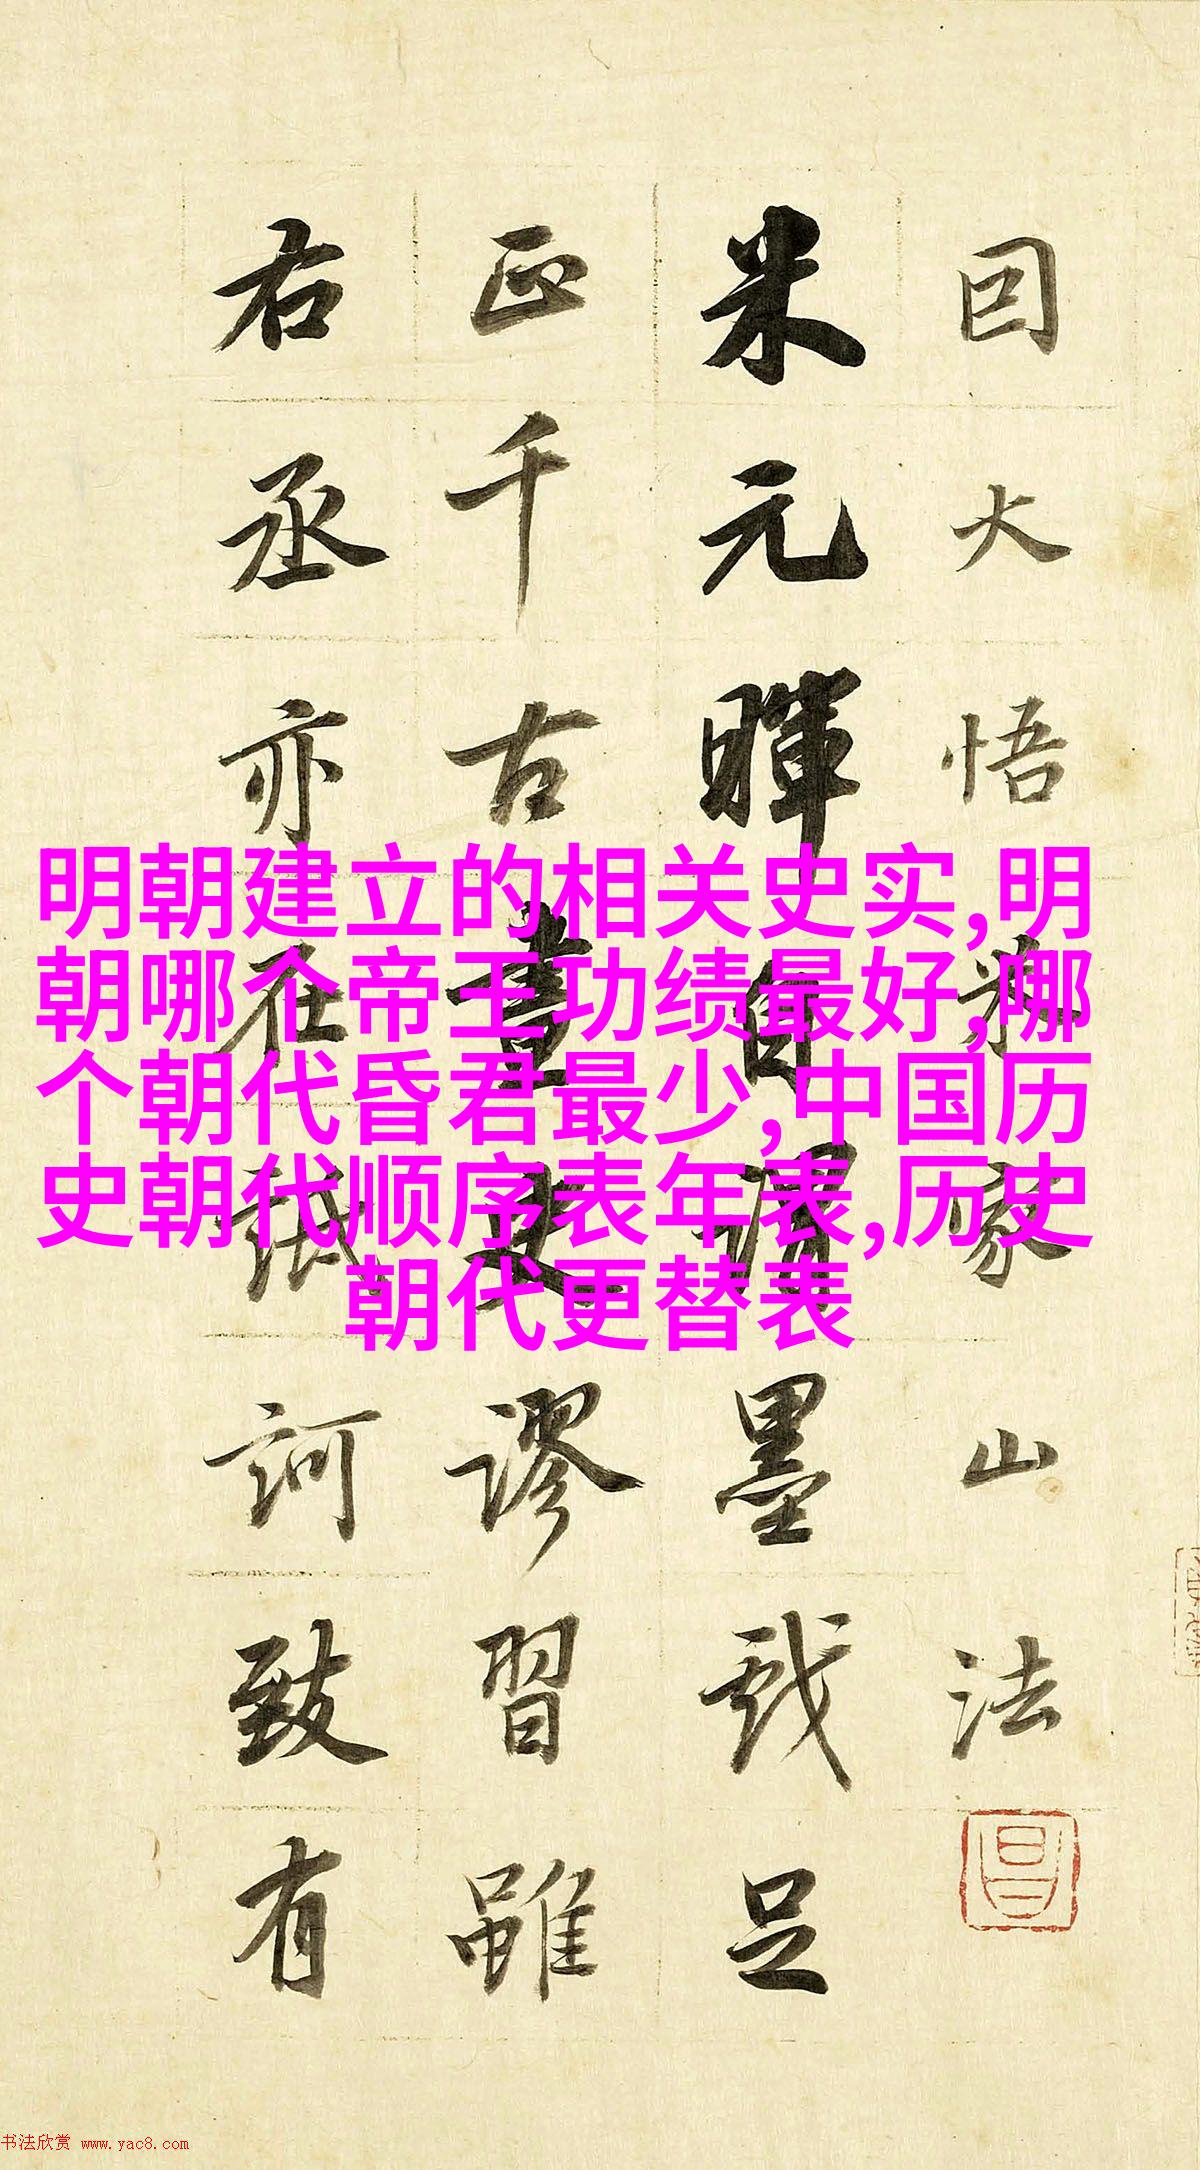 囙大悟米家山法
米元暉自謂墨戲足
正千古畫史謬習雖
右丞亦在詆訶致有
明朝建立的相关史实,明
朝哪个帝王功绩最好,哪
个朝代昏君最少,中国历
史朝代顺序表年表,历史
朝代更替表
书法欣赏 www.yac8.com